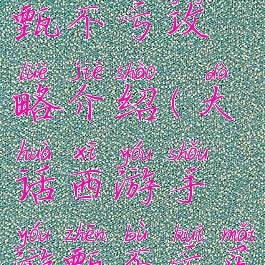 甄不亏攻
lüè jiè shào dà
略介绍(大
huà xī yóu shǒu
话西游手
yóu zhēn bù kuī mǎi
游甄不亏买